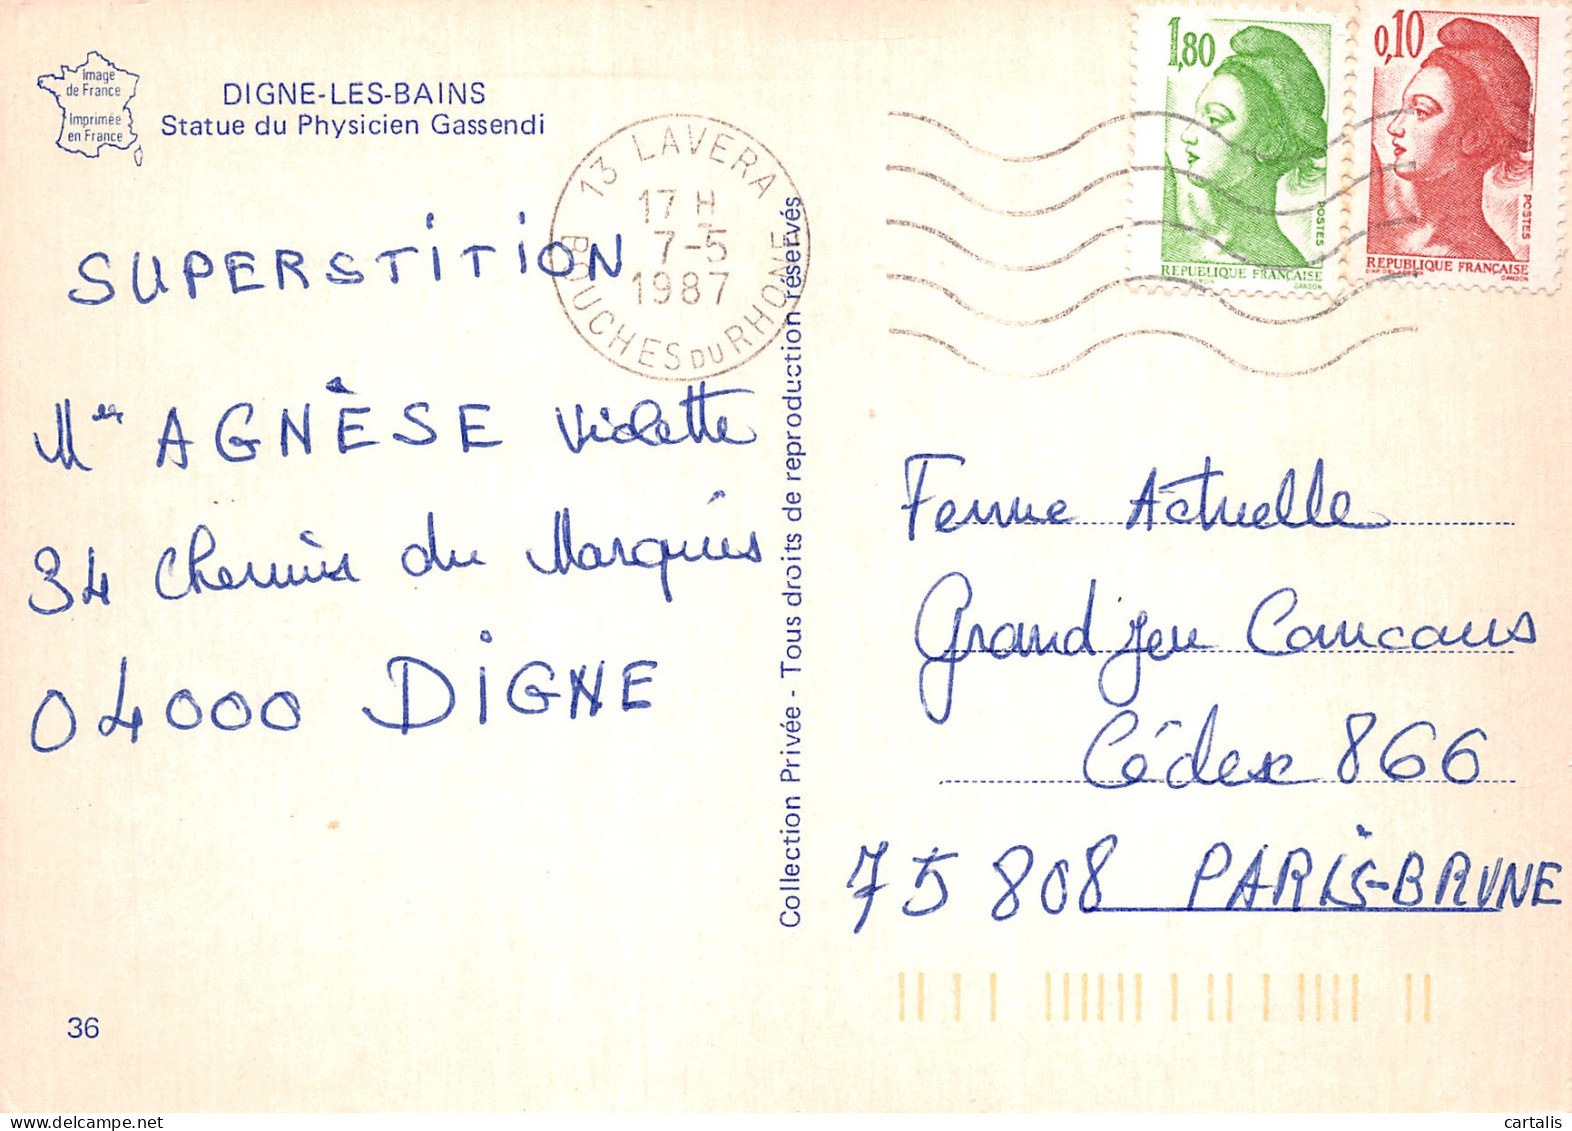 Image
de France
Imprimée
en France
DIGNE-LES-BAINS
Statue du Physicien Gassendi
13 LAVERA
17 H
7-5
1987
BOUCHES DU RHONE
1,80
POSTES
REPUBLIQUE FRANÇAISE
GANDON
0,10
POSTES
REPUBLIQUE FRANÇAISE
GANDON
SUPERSTITION
AGNÈSE Violette
34 Chemin du Marquis
04000 DIGNE
Collection Privée - Tous droits de reproduction réservés
Femme Actuelle
Grand Jeu Cancans
Cédex 866
75808 PARIS-BRUNE
36
cartalis